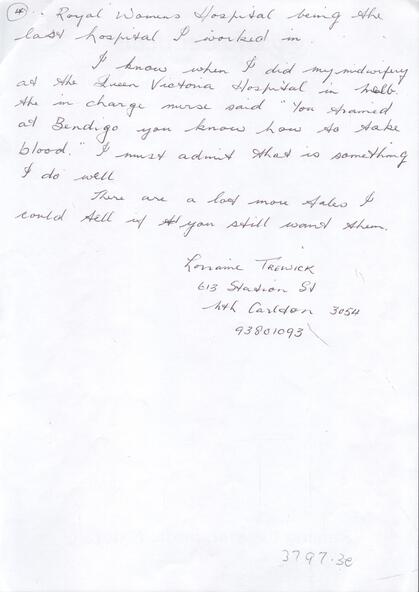 4. Royal Womens Hospital being the
last hospital I worked in.
I know when I did my midwifery
at the Queen Victoria Hospital in Melb.
the in charge nurse said "You trained
at Bendigo you know how to take
blood." I must admit that is something
I do well
There are a lot more tales I
could tell if you still want them.
Lorraine TREWICK
613 Station St
Nth Carlton 3054
93801093
3797.3e